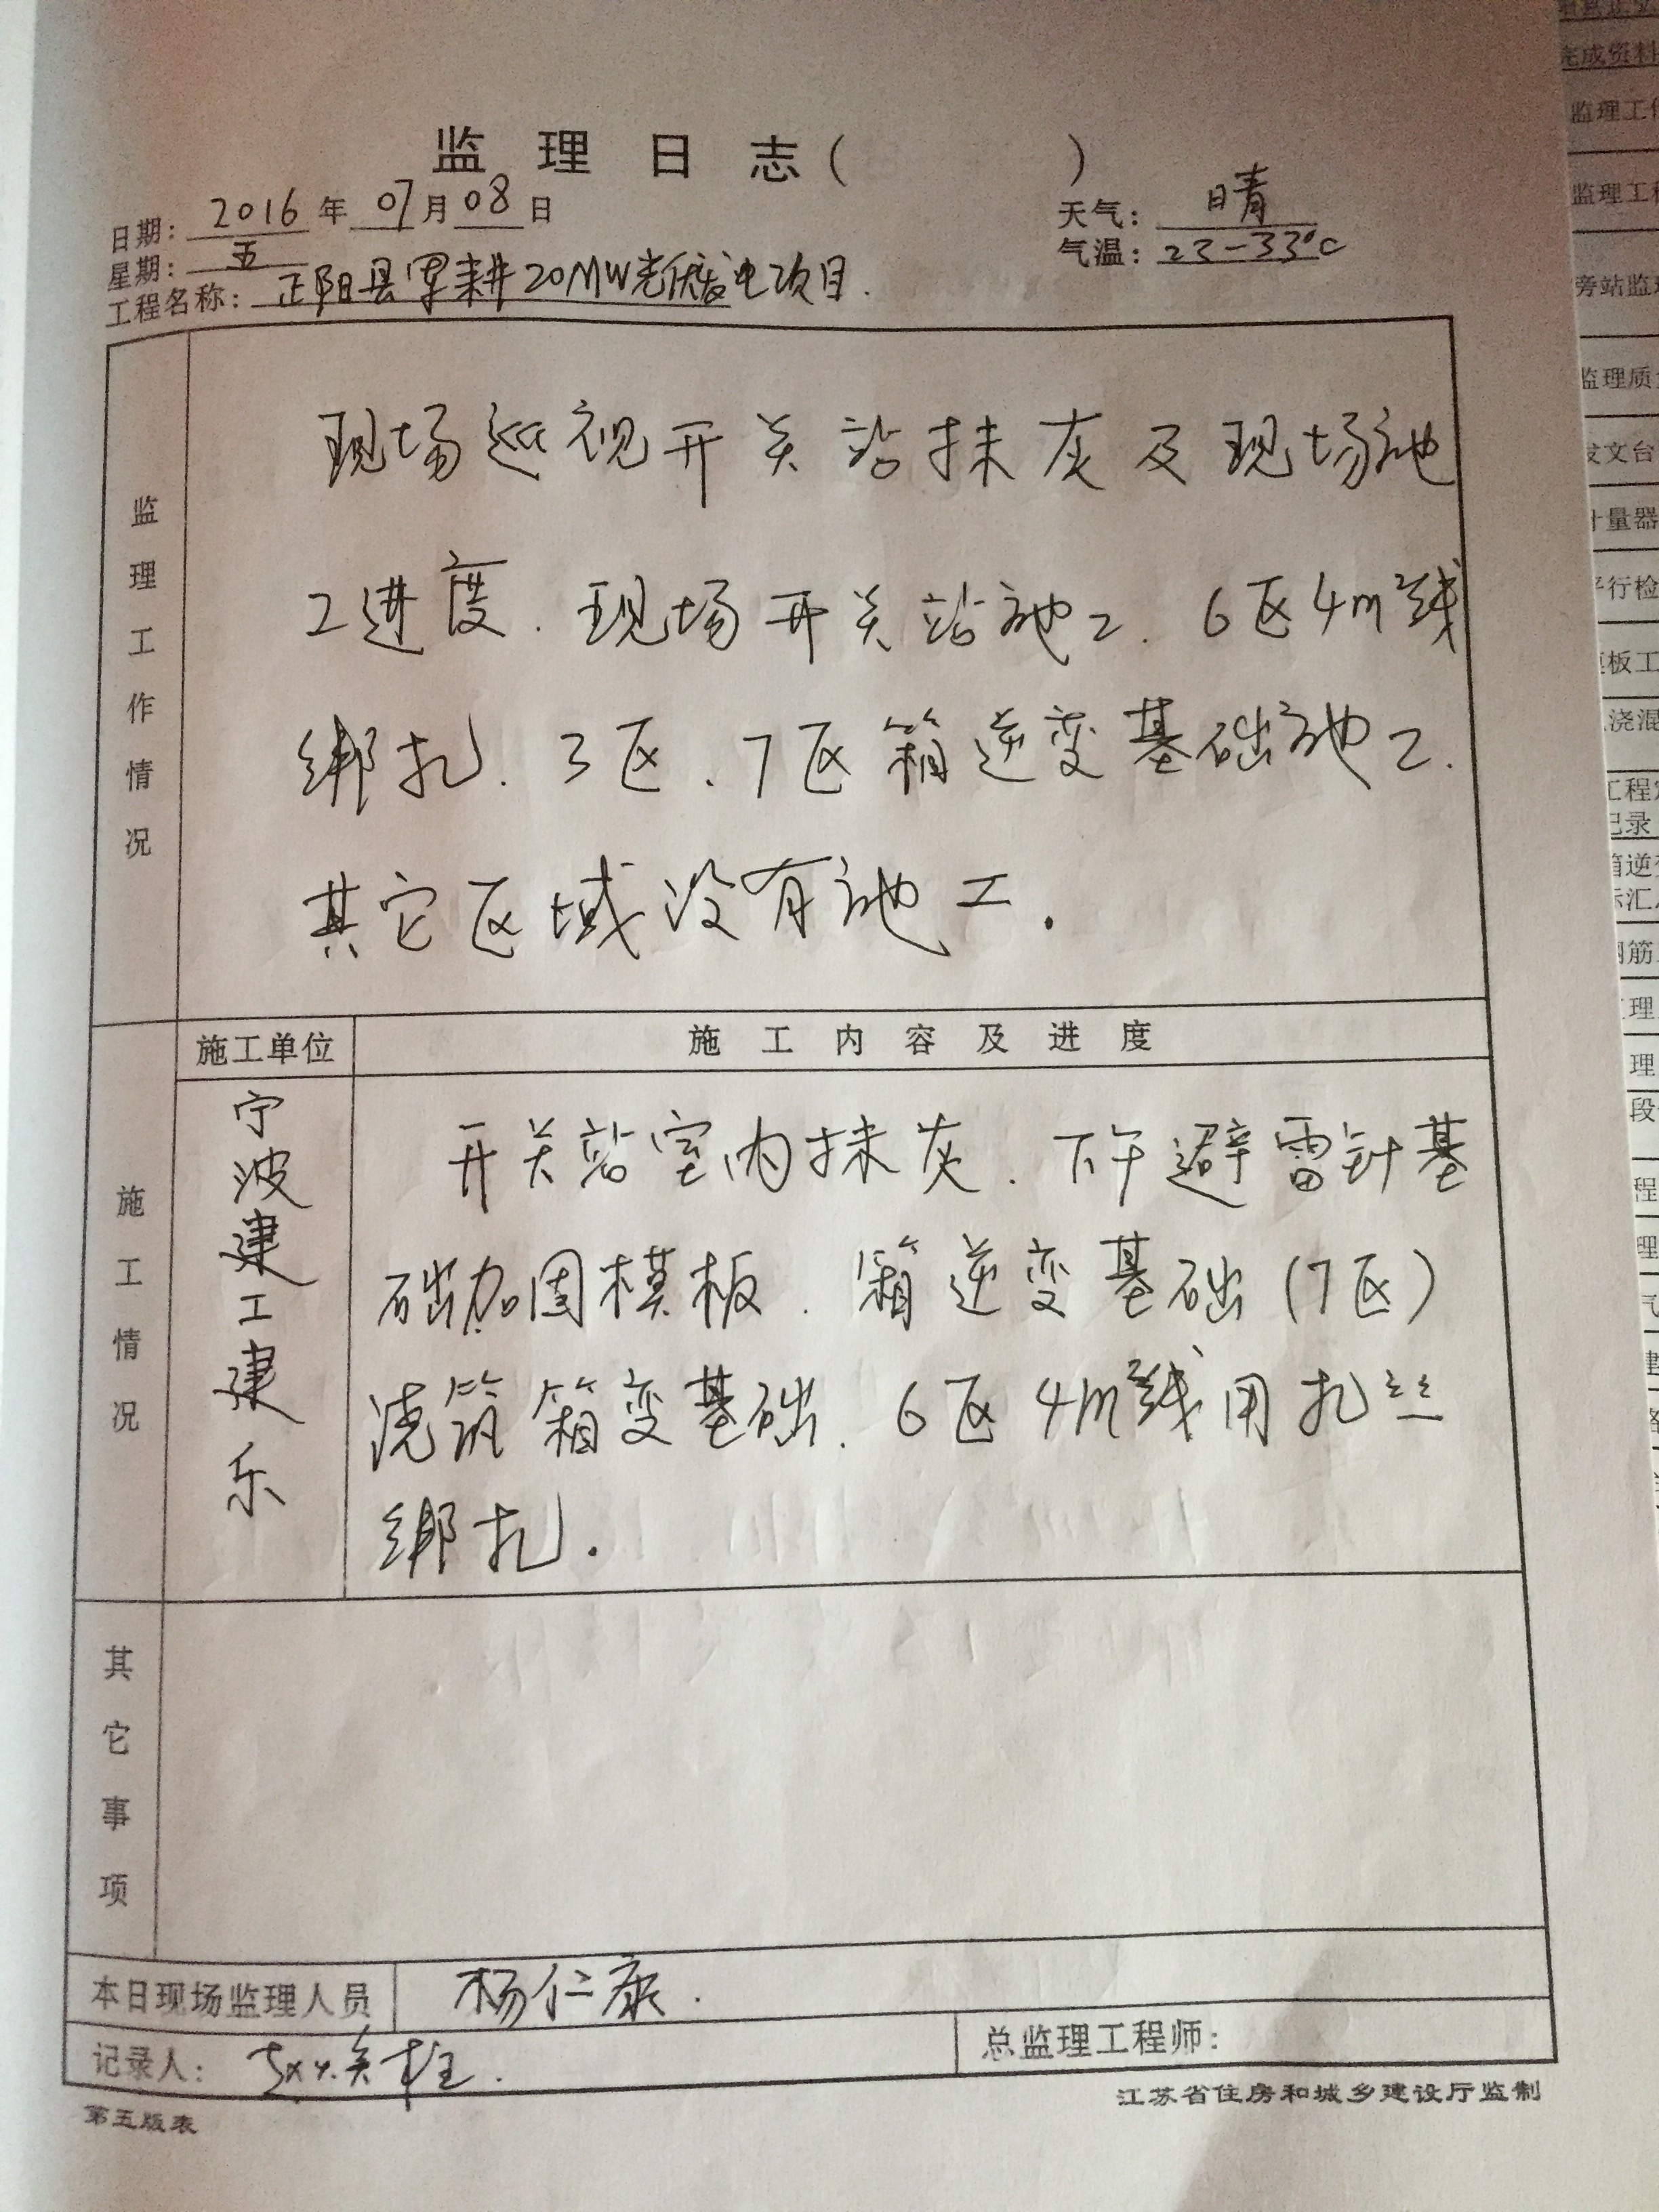 监理日志(          )
日期: 2016 年 07 月 08 日
天气: 晴
星期: 五
气温: 23-33℃
工程名称: 正阳县军耕20MW光伏发电项目.
监理工作情况
现场巡视开关站抹灰及现场施
工进度. 现场开关站施工. 6区4m线
绑扎. 3区、7区箱逆变基础施工.
其它区域没有施工.
施工情况
施工单位
施工内容及进度
宁波建工建乐
开关站室内抹灰. 下午避雷针基
础加固模板. 箱逆变基础(7区)
浇筑箱变基础. 6区4m线用扎丝
绑扎.
其它事项
本日现场监理人员 杨仁康.
记录人:
总监理工程师:
第五版表
江苏省住房和城乡建设厅监制
完成资料
监理工
监理工程
旁站监理
监理质
发文台
计量器
平行检
模板工
浇混
工程
记录
箱逆变
标汇
钢筋
理
理
段
程
理